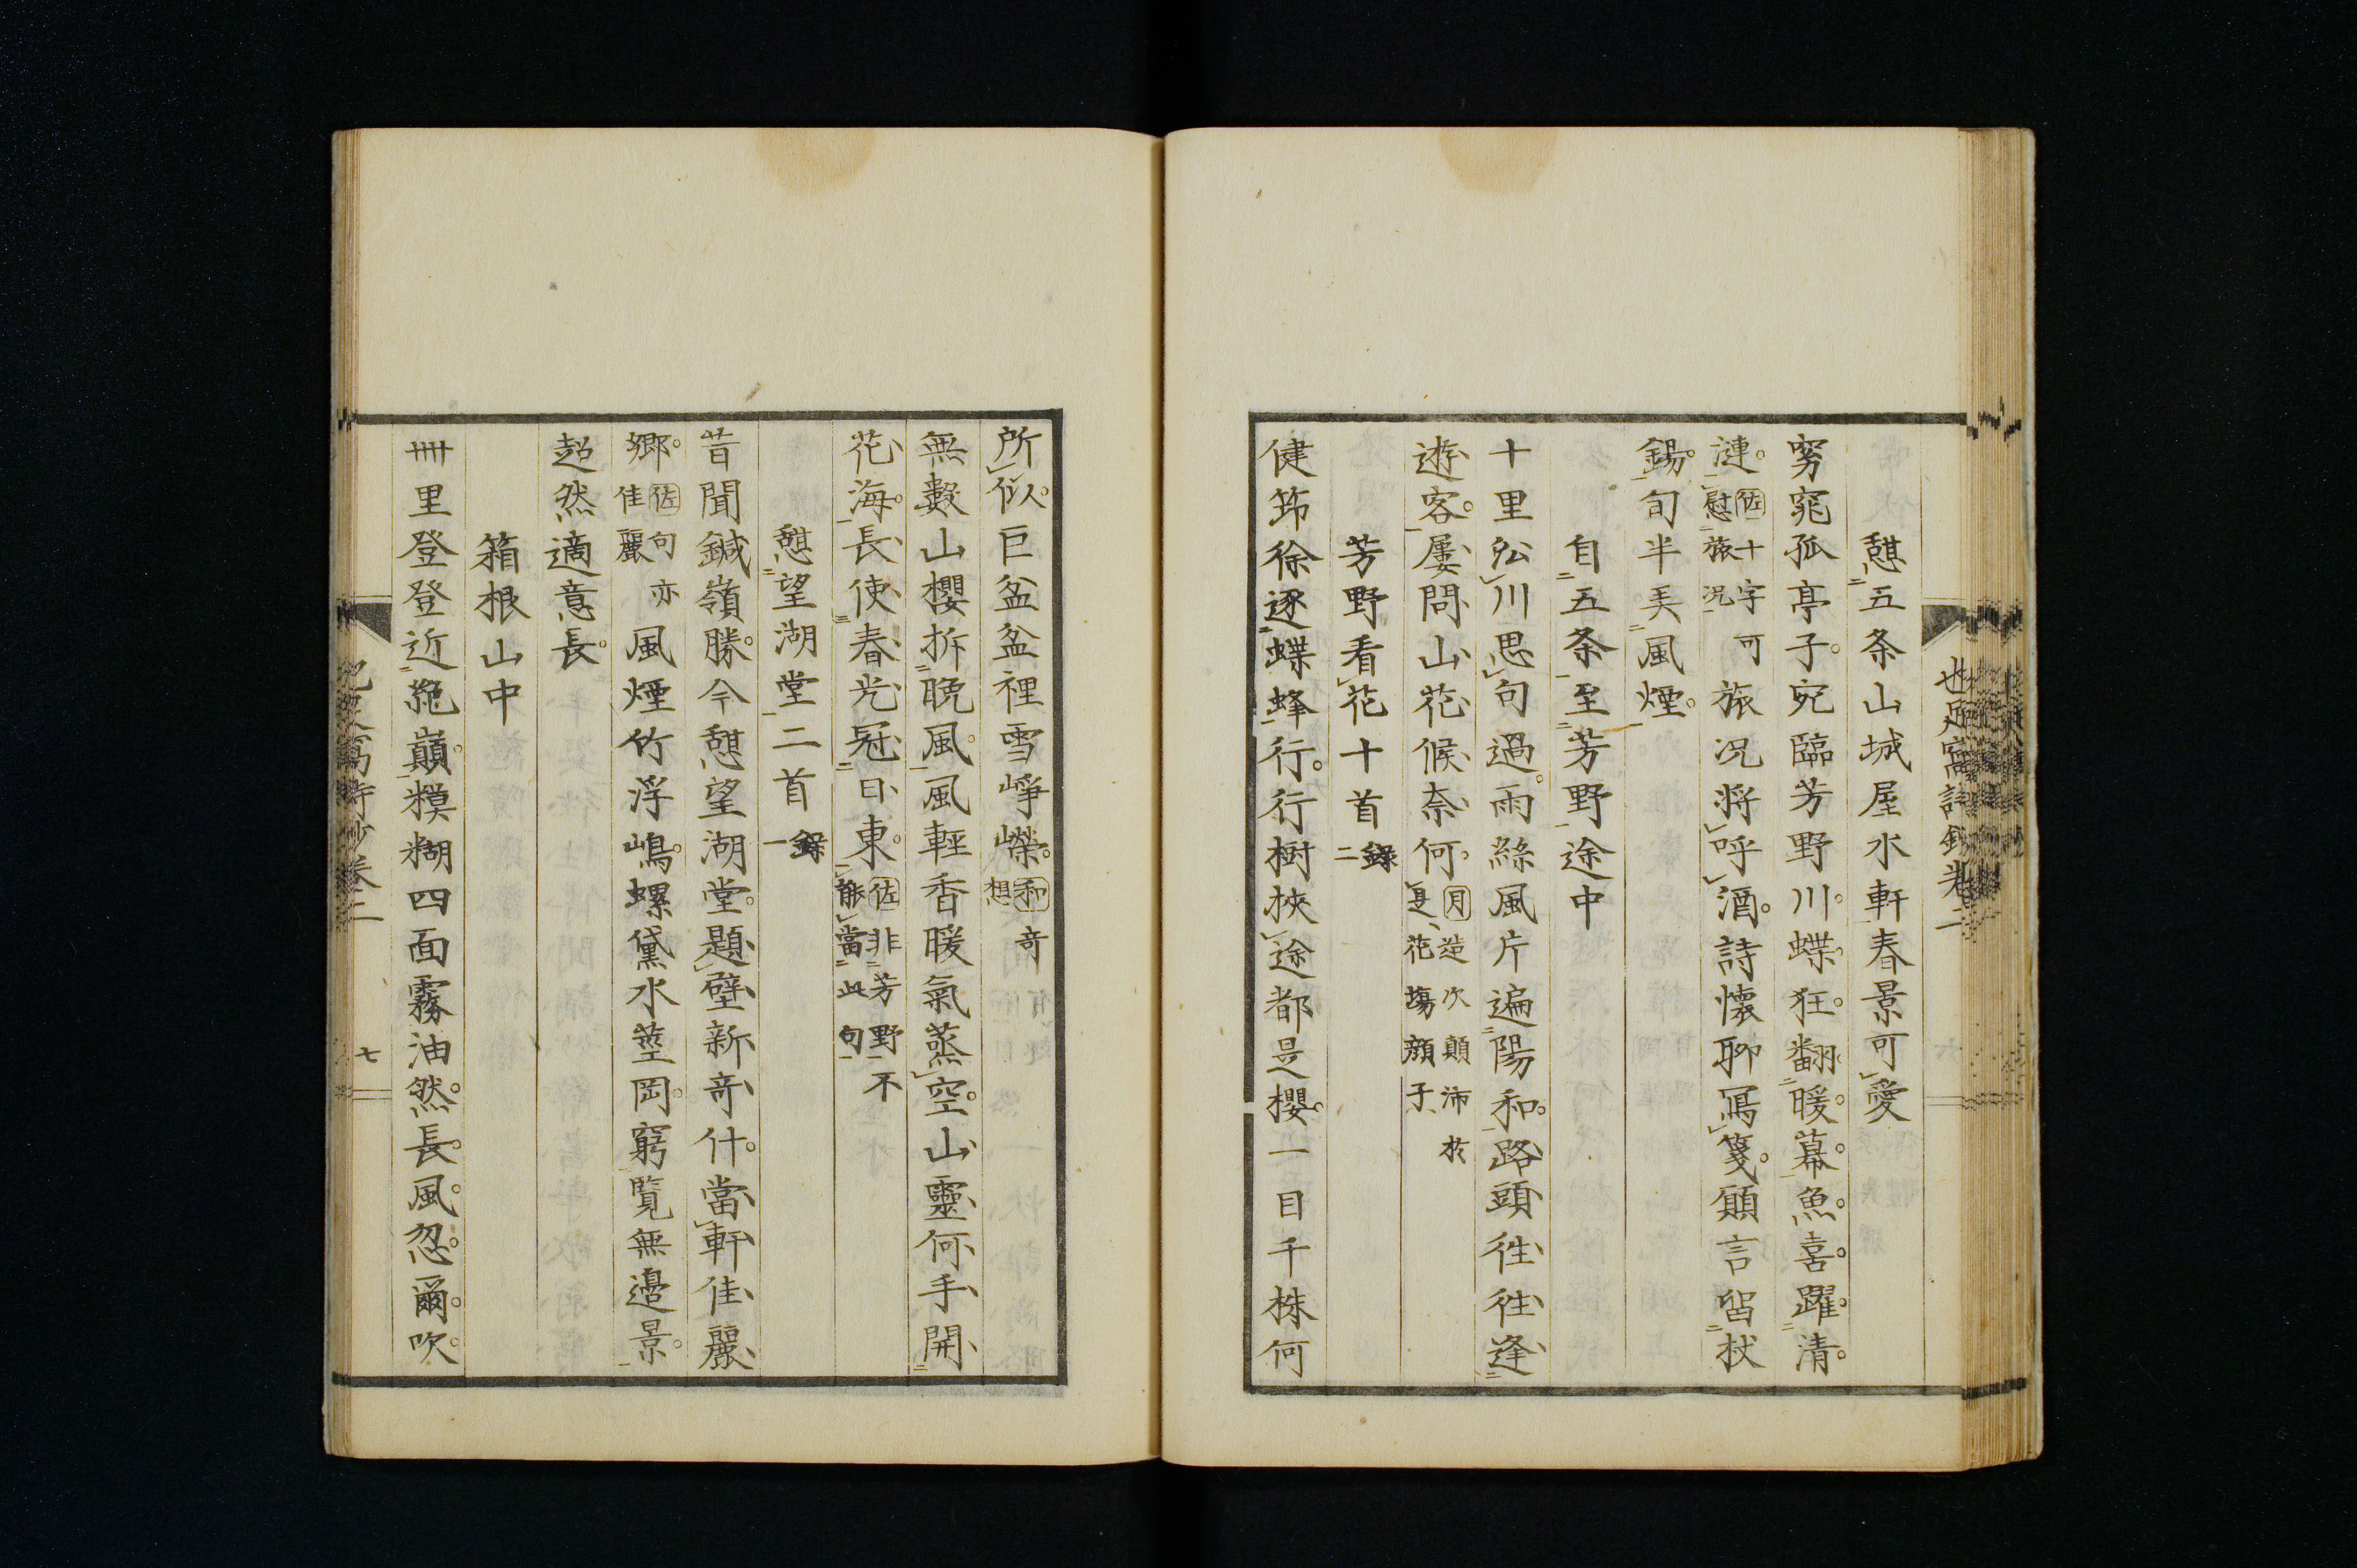 憇五条山城屋水軒春景可愛
窈窕孤亭子宛臨芳野川蝶狂翻暖幕魚喜躍清
漣佐十字可慰旅況旅況将呼酒詩懐聊寫箋願言留杖
錫旬半美風煙
自五条至芳野途中
十里㳂川思句過雨絲風片遍陽和路頭徃徃逢
遊客屢問山花候奈何月造次顛沛於是花塲顔子
芳野看花十首録二
健笻徐逐蝶蜂行行樹挾途都是櫻一目千株何
所似巨盆盆裡雪崢嶸和竒想
無數山櫻拆晩風風輕香暖氣蒸空山靈何手開
花海長使春光冠日東佐非芳野不能當此句
憇望湖堂二首録一
昔聞鍼嶺勝今憇望湖堂題壁新竒什當軒佳麗
郷佐句亦佳麗風煙竹浮嶋螺黛水莖岡窮覽無邉景
超然適意長
箱根山中
卌里登登近絶巓糢糊四面霧油然長風忽爾吹
七